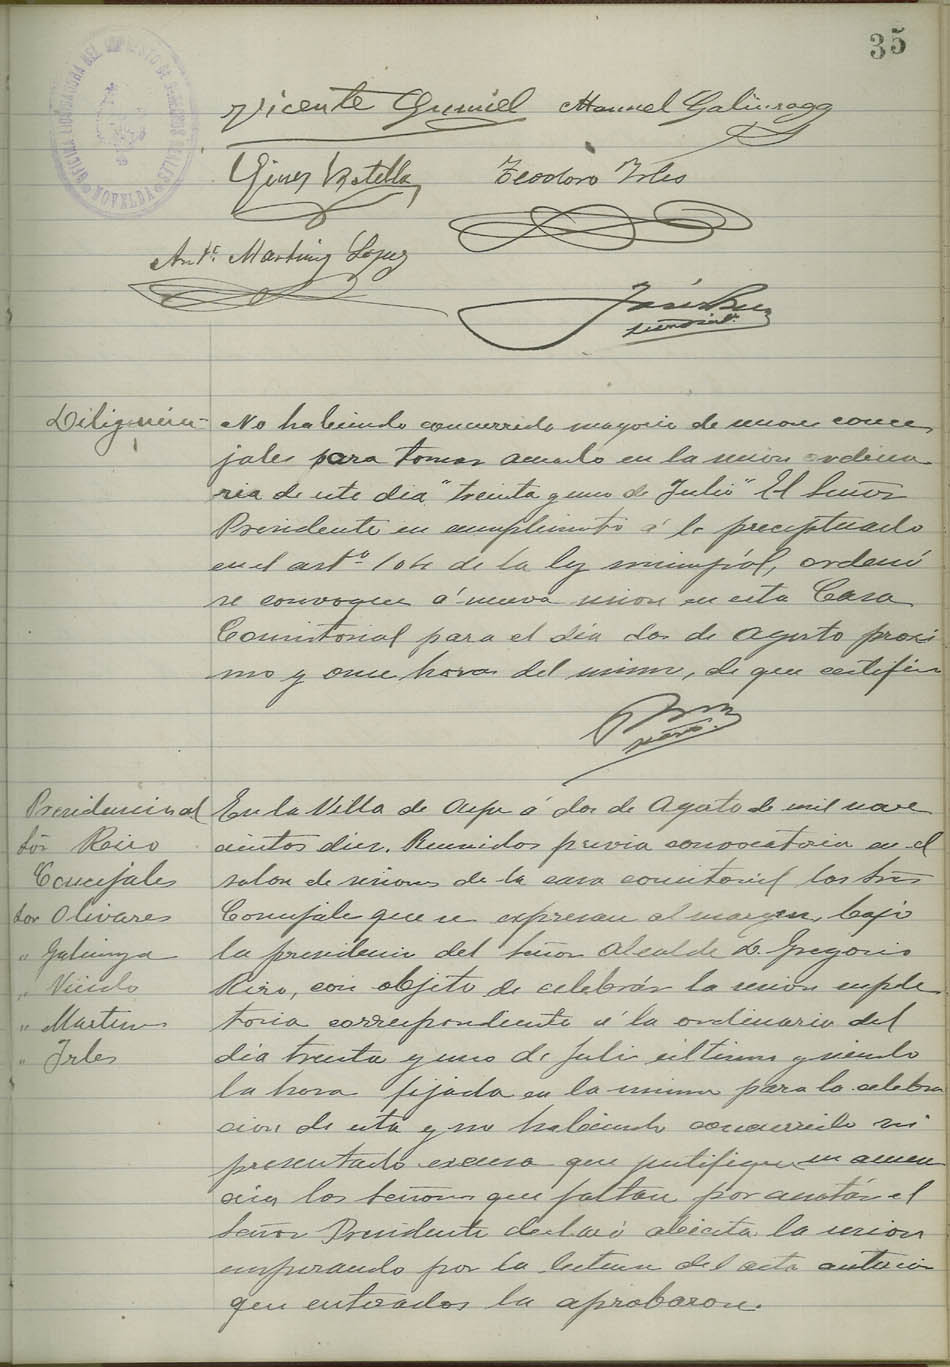 35
OFICINA LIQUIDADORA DEL IMPUESTO DE DERECHOS REALES
NOVELDA
Vicente Gumiel Manuel Galinsoga
Gines Botella Teodoro Irles
Antº Martinez Lopez
Secretariº
Diligencia- No habiendo concurrido mayoria de señores conce
jales para tomar acuerdo en la sesion ordina
ria de este dia "treinta y uno de Julio" El Señor
Presidente en cumplimento á lo preceptuado
en el artº 104 de la ley municipál, ordenó
se convoque á nueva sesion en esta Casa
Consistorial para el día dos de Agosto proxi
mo y once horas del mismo, de que certifico
Presidencia del En la Villa de Aspe á dos de Agosto de mil nove
Sór Rico cientos diez. Reunidos previa convocatoria en el
Concejales salon de sesiones de la casa consistorial los Sres
Sor Olivares Concejales que se expresan al margen, bajo
" Galinsoga la presidencia del Señor Alcalde D. Gregorio
" Vicedo Rico, con objeto de celebrár la sesión suple
" Martinez toria correspondiente á la ordinaria del
" Irles dia treinta y uno de Julio ultimo y siendo
la hora fijada en la misma para la celebra
cion de esta y no habiendo concurrido ni
presentado excusa que justifique su ausen
cia los señores que faltan por anotár el
Señor Presidente declaró abierta la sesion
empezando por la lectura del acta anterior
que enterados la aprobaron.